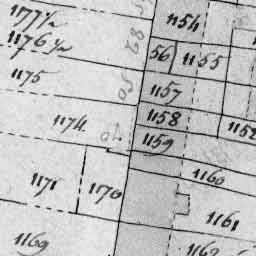 1177 1/2
1176 1/2
1175
1174
1171
1170
1169
1154
56
1155
1157
1158
1159
1152
1160
1161
1162